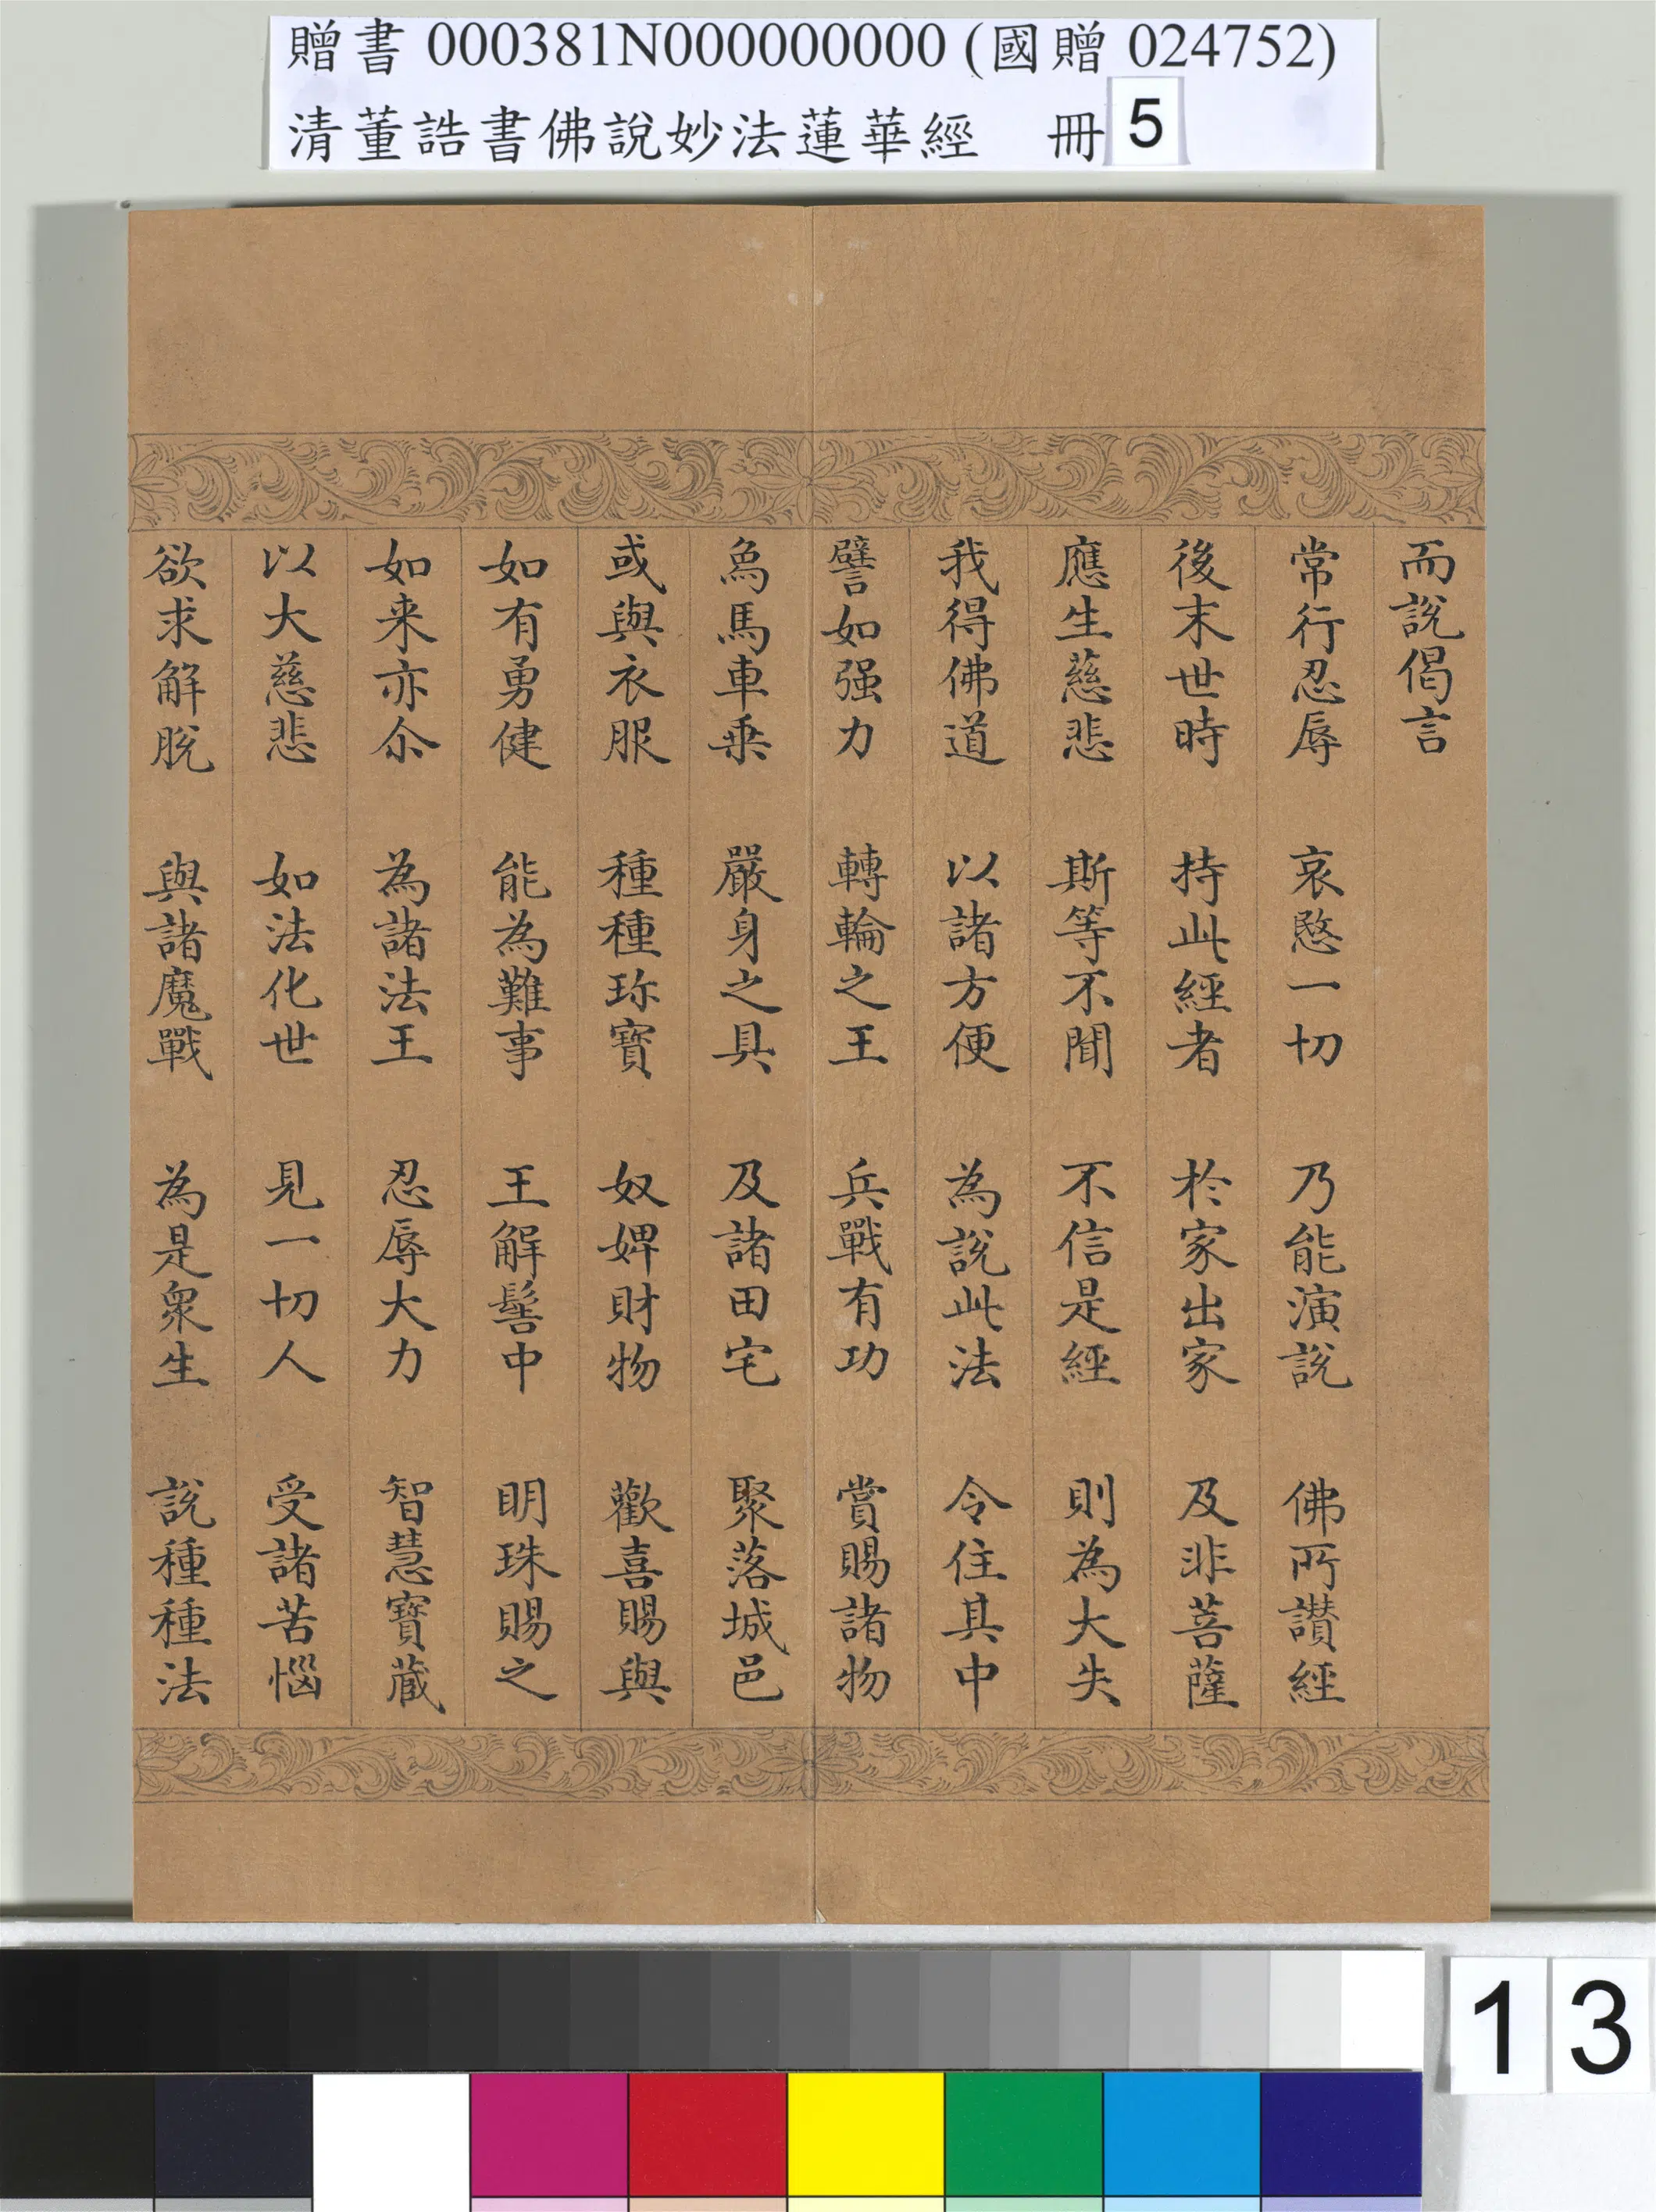 贈書 000381N000000000 (國贈 024752)
清董誥書佛說妙法蓮華經 冊 5
而說偈言
常行忍辱 哀愍一切 乃能演說 佛所讃經
後末世時 持此經者 於家出家 及非菩薩
應生慈悲 斯等不聞 不信是經 則為大失
我得佛道 以諸方便 為說此法 令住其中
譬如强力 轉輪之王 兵戰有功 賞賜諸物
象馬車乗 嚴身之具 及諸田宅 聚落城邑
或與衣服 種種珎寶 奴婢財物 歡喜賜與
如有勇健 能為難事 王解髻中 明珠賜之
如来亦尒 為諸法王 忍辱大力 智慧寶蔵
以大慈悲 如法化世 見一切人 受諸苦惱
欲求解脫 與諸魔戰 為是衆生 說種種法
13